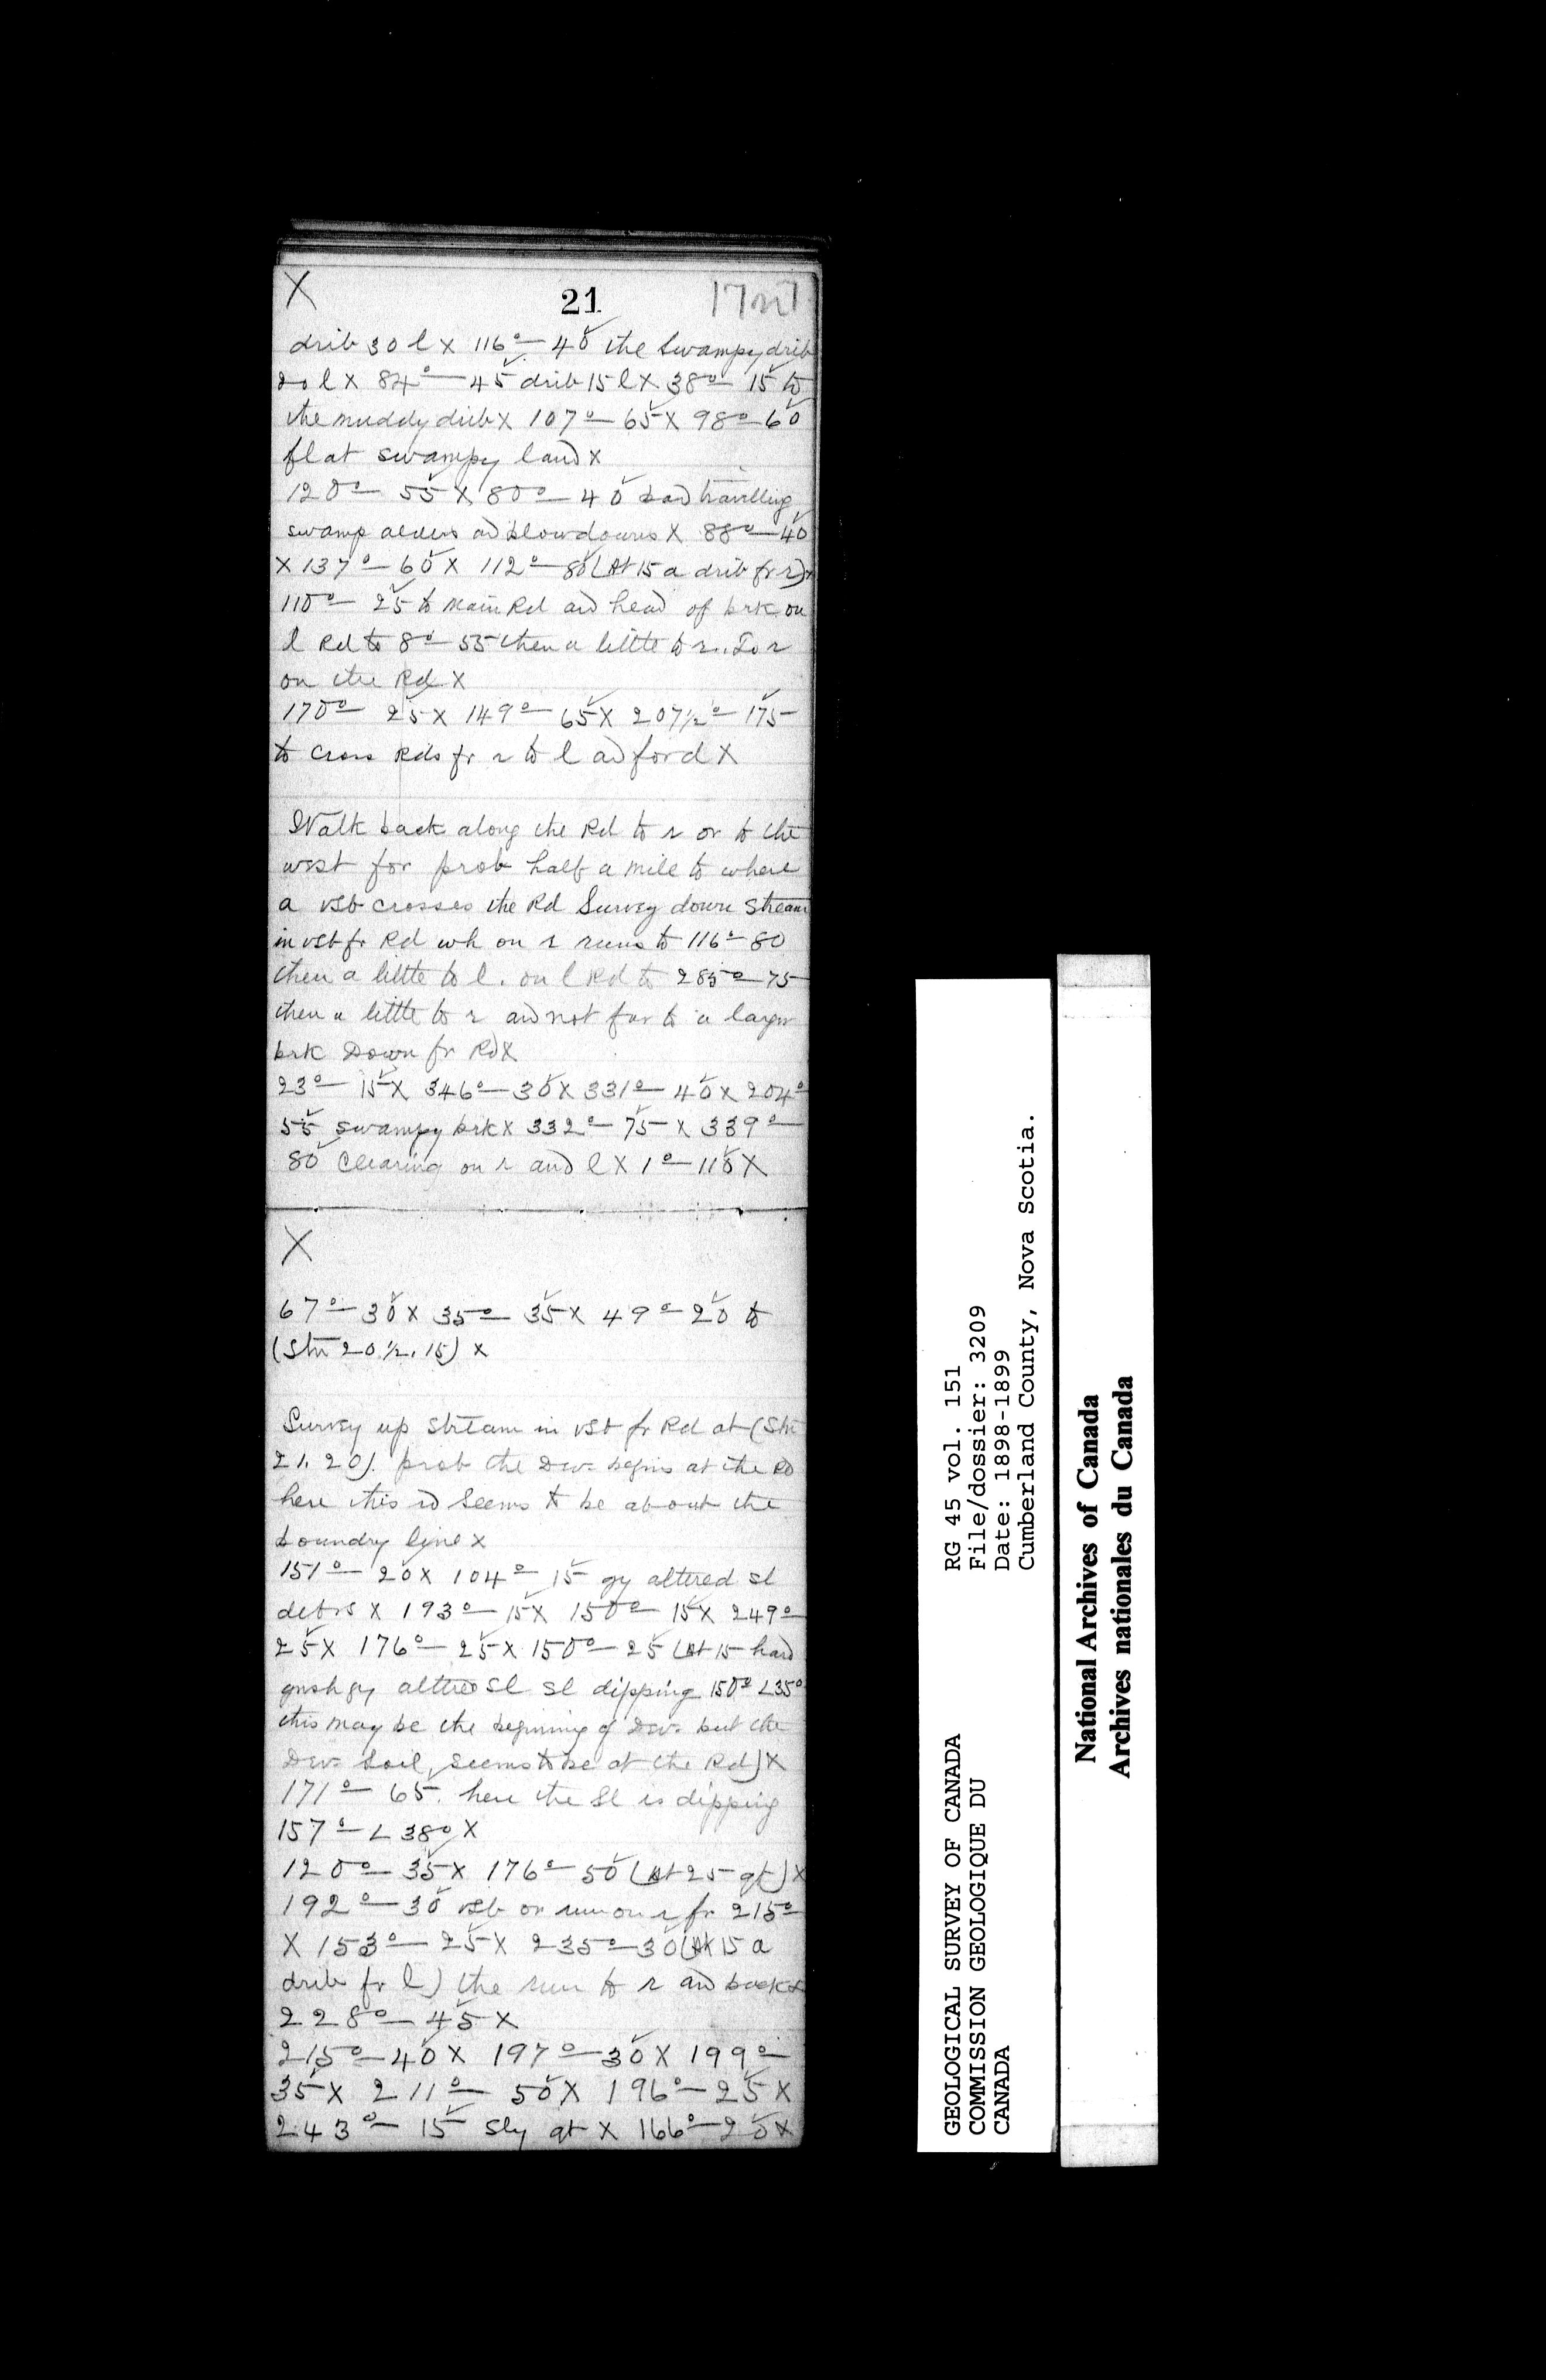 X 21 17
drib 30 l X 116° — 40 the Swampy drib
20 l X 84° — 45 drib 15 l X 38° — 15 to
the muddy drib X 107° — 65 X 98° — 60
flat swampy land X
120° — 55 X 80° — 40 bad travelling
swamp alders ad blowdowns X 88° — 40
X 137° — 60 X 112° — 80 (At 15 a drib fr r) X
110° — 25 to Main Rd and head of brk on
l Rd to 8° — 55 then a little to r. To r
on the Rd X
170° — 25 X 149° — 65 X 207 1/2° — 175
to Cross Rds fr r to l ad ford X
Walk back along the Rd to r or to the
west for prob half a mile to where
a vsb crosses the Rd Survey down Stream
in vsb fr Rd wh on r runs to 116° — 80
then a little to l. on l Rd to 285° — 75
then a little to r and not far to a larger
brk Down fr Rd X
23° — 15 X 346° — 30 X 331° — 40 X 204° —
55 swampy brk X 332° — 75 X 339° —
80 Clearing on r and l X 1° — 110 X
X
67° — 30 X 35° — 35 X 49° — 20 to
(Stn 20 1/2. 15) X
Survey up Stream in vsb fr Rd at (Stn
21. 20). prob the Dev. begins at the Rd
here this rd Seems to be about the
boundry line X
151° — 20 X 104° — 15 gy altered sl
debris X 193° — 15 X 150° — 15 X 249° —
25 X 176° — 25 X 150° — 25 (At 15 hard
gnsh gy altred Sl Sl dipping 150° < 35°
this may be the beginning of Dev. but the
Dev. Soil, seems to be at the Rd) X
171° — 65. here the Sl is dipping
157° — < 38° X
120° — 35 X 176° — 50 (At 25 qt) X
192° — 30 vsb or run on r fr 215° —
X 153° — 25 X 235° — 30 (At 15 a
drib fr l) the run to r and back X
228° — 45 X
215° — 40 X 197° — 30 X 199° —
35 X 211° — 50 X 196° — 25 X
243° — 15 Sly qt X 166° — 20 X
GEOLOGICAL SURVEY OF CANADA
COMMISSION GEOLOGIQUE DU
CANADA
RG 45 vol. 151
File/dossier: 3209
Date: 1898-1899
Cumberland County, Nova Scotia.
National Archives of Canada
Archives nationales du Canada